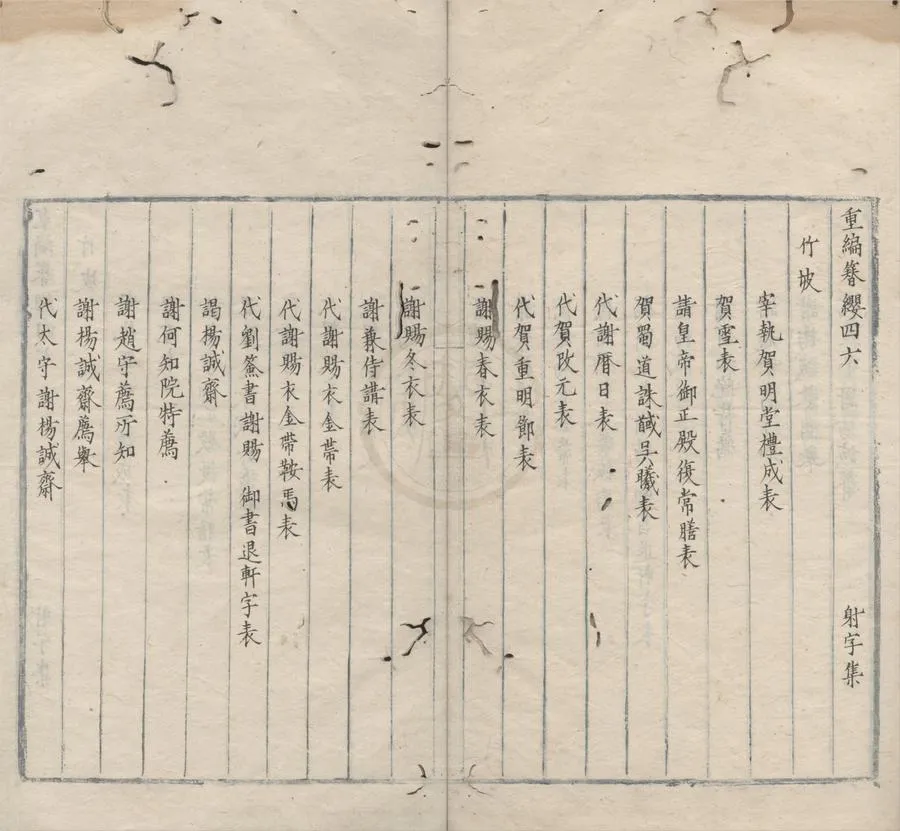 重編簪纓四六 射字集
竹坡
宰執賀明堂禮成表
賀雪表
請皇帝御正殿復常膳表
賀蜀道誅馘吳曦表
代謝曆日表
代賀改元表
代賀重明節表
謝賜春衣表
謝賜冬衣表
謝兼侍講表
代謝賜衣金帶表
代謝賜衣金帶鞍馬表
代劉簽書謝賜 御書退軒字表
謁楊誠齋
謝何知院特薦
謝趙守薦所知
謝楊誠齋薦舉
代太守謝楊誠齋